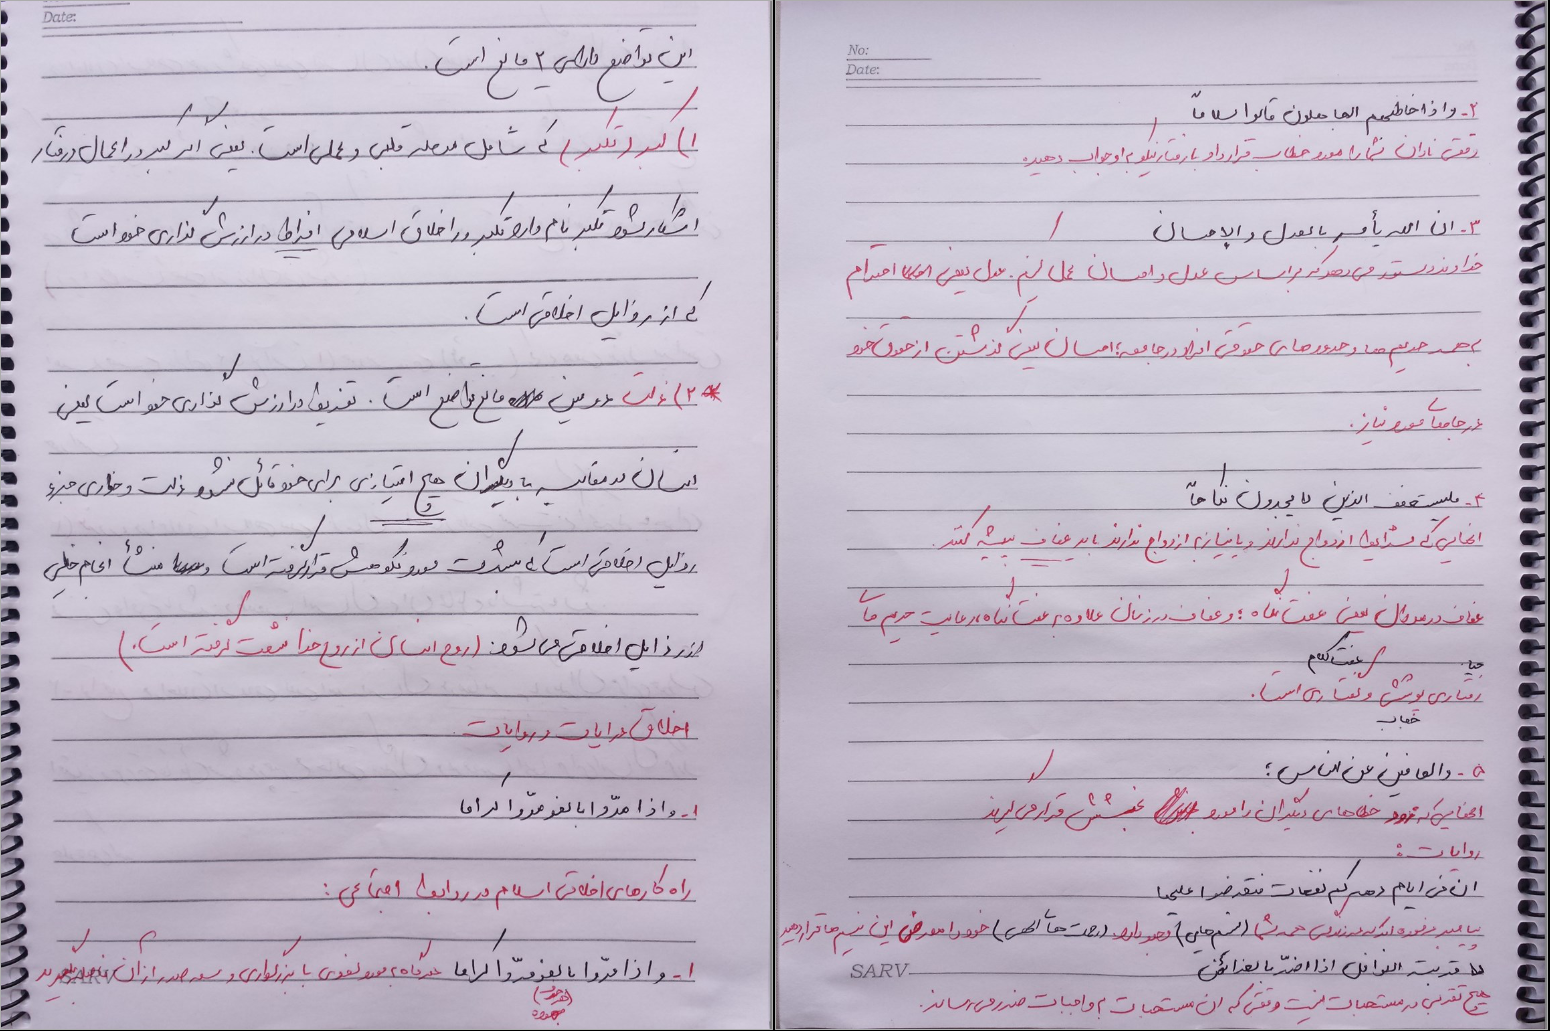 Date:
این تواضع دارای ۲ مانع است.
۱) کبر (تکبر) که شامل مرحله قلبی و عملی است. یعنی اگر کبر در اعمال و رفتار
آشکار بشود تکبر نام دارد تکبر در اخلاق اسلامی افراط در ارزش گذاری خود است
که از رذایل اخلاقی است.
* ۲) ذلت دومین مانع تواضع است. تفریط در ارزش گذاری خود است یعنی
انسان در مقایسه با دیگران هیچ امتیازی برای خود قائل نشود ذلت و خواری جزء
رذایل اخلاقی است که بشدت مورد نکوهش قرار گرفته است و منشأ انجام خیلی
از رذایل اخلاقی می شود: (روح انسان از روح خدا نشئت گرفته است.)
اخلاق در آیات و روایات
۱- و اذا مرّوا بالغو مرّوا کراما
راه کارهای اخلاقی اسلام در روابط اجتماعی:
۱- و اذا مرّوا بالغو مرّوا کراما هرگاه به مورد لغوی با بزرگواری و سعه صدر از آن
بیهوده
SARV
No:
Date:
۲- و اذا خاطبهم الجاهلون قالوا سلاماً
وقتی نادان شما را مورد خطاب قرار داد با رفتار نیکو به او جواب دهید.
۳- ان الله یأمر بالعدل و الاحسان
خداوند دستور می دهد که بر اساس عدل و احسان عمل کنیم. عدل یعنی احترام
به همه حریم ها و حدودهای حقوقی افراد در جامعه؛ احسان یعنی گذشتن از حقوق خود
در جاهای مورد نیاز.
۴- فلیستعفف الذین لا یجدون نکاحاً
آنهایی که شرایط ازدواج ندارند و یا نیاز به ازدواج ندارند باید عفاف پیشه کنند.
عفاف در مردان یعنی عفت نگاه؛ و عفاف در زنان علاوه بر عفت نگاه، رعایت حریم های
حیا عفت کلام
رفتاری پوششی و گفتاری است.
حجاب
۵- والعافین عن الناس؛
آنهایی که خطاهای دیگران را مورد بخشش قرار می گیرند
روایات:
ان فی ایام دهرکم نفحات فتعرضوا علیها
پیامبر فرموده اند که در زندگی همه شما (نسیم هایی) وجود دارد (رحمت های الهی) خود را معرض این نسیم ها قرار دهید
لا قربة النوافل اذا اضرّ بالفرائض
هیچ تقربی در مستحبات نیست وقتی که آن مستحبات به واجبات ضرر می رساند.
SARV